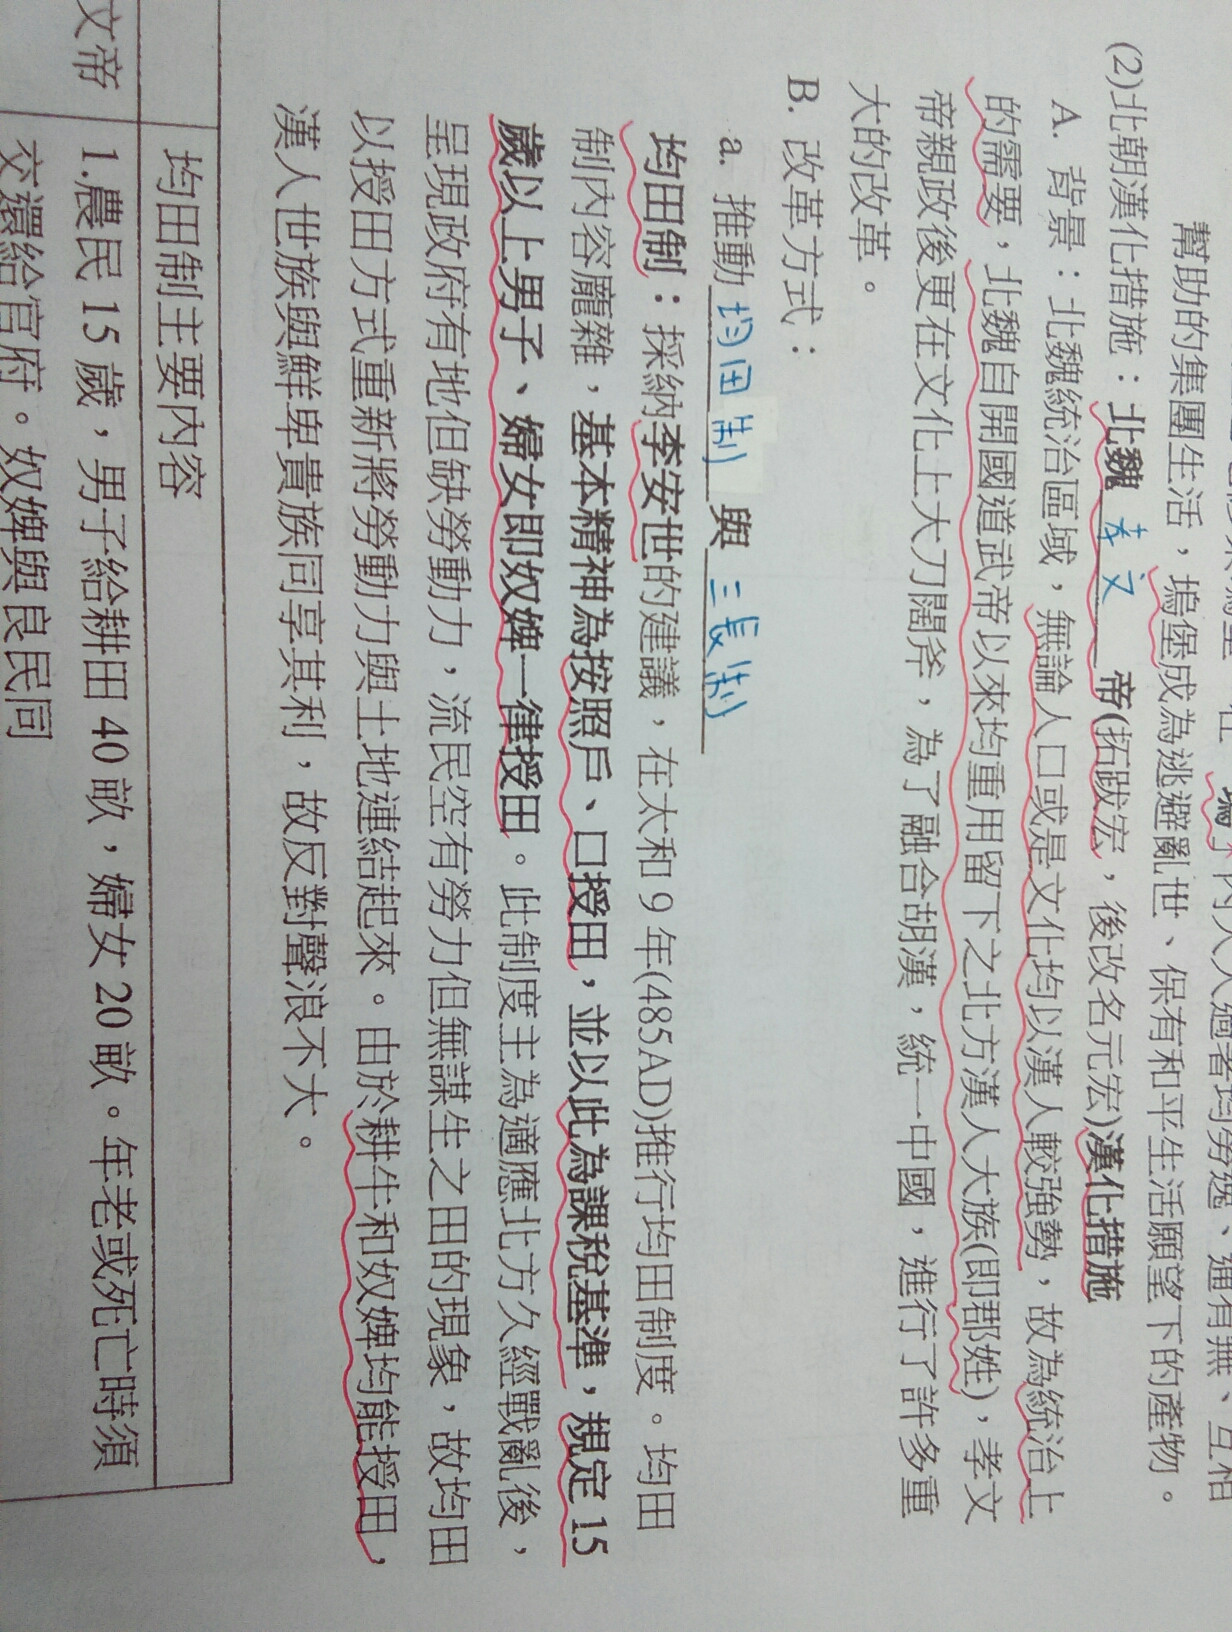 幫助的集團生活，塢堡成為逃避亂世、保有和平生活願望下的產物。
(2)北朝漢化措施：北魏 孝文 帝(拓跋宏，後改名元宏)漢化措施
A. 背景：北魏統治區域，無論人口或是文化均以漢人較強勢，故為統治上
的需要，北魏自開國道武帝以來均重用留下之北方漢人大族(即郡姓)，孝文
帝親政後更在文化上大刀闊斧，為了融合胡漢，統一中國，進行了許多重
大的改革。
B. 改革方式：
a. 推動 均田制 與 三長制
均田制：採納李安世的建議，在太和9年(485AD)推行均田制度。均田
制內容龐雜，基本精神為按照戶、口授田，並以此為課稅基準，規定15
歲以上男子、婦女即奴婢一律授田。此制度主為適應北方久經戰亂後，
呈現政府有地但缺勞動力，流民空有勞力但無謀生之田的現象，故均田
以授田方式重新將勞動力與土地連結起來。由於耕牛和奴婢均能授田，
漢人世族與鮮卑貴族同享其利，故反對聲浪不大。
均田制主要內容
文帝 1.農民15歲，男子給耕田40畝，婦女20畝。年老或死亡時須
交還給官府。奴婢與良民同